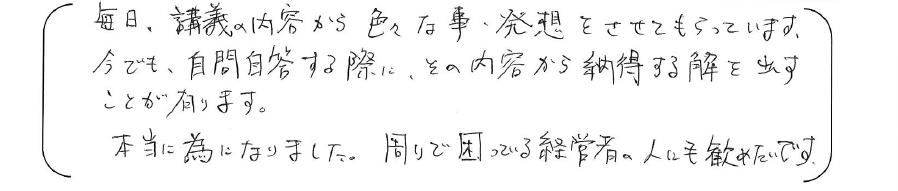 毎日、講義の内容から色々な事・発想をさせてもらっています、
今でも、自問自答する際に、その内容から納得する解を出す
ことが有ります。
本当に為になりました。周りで困っている経営者の人にも歓めたいです。